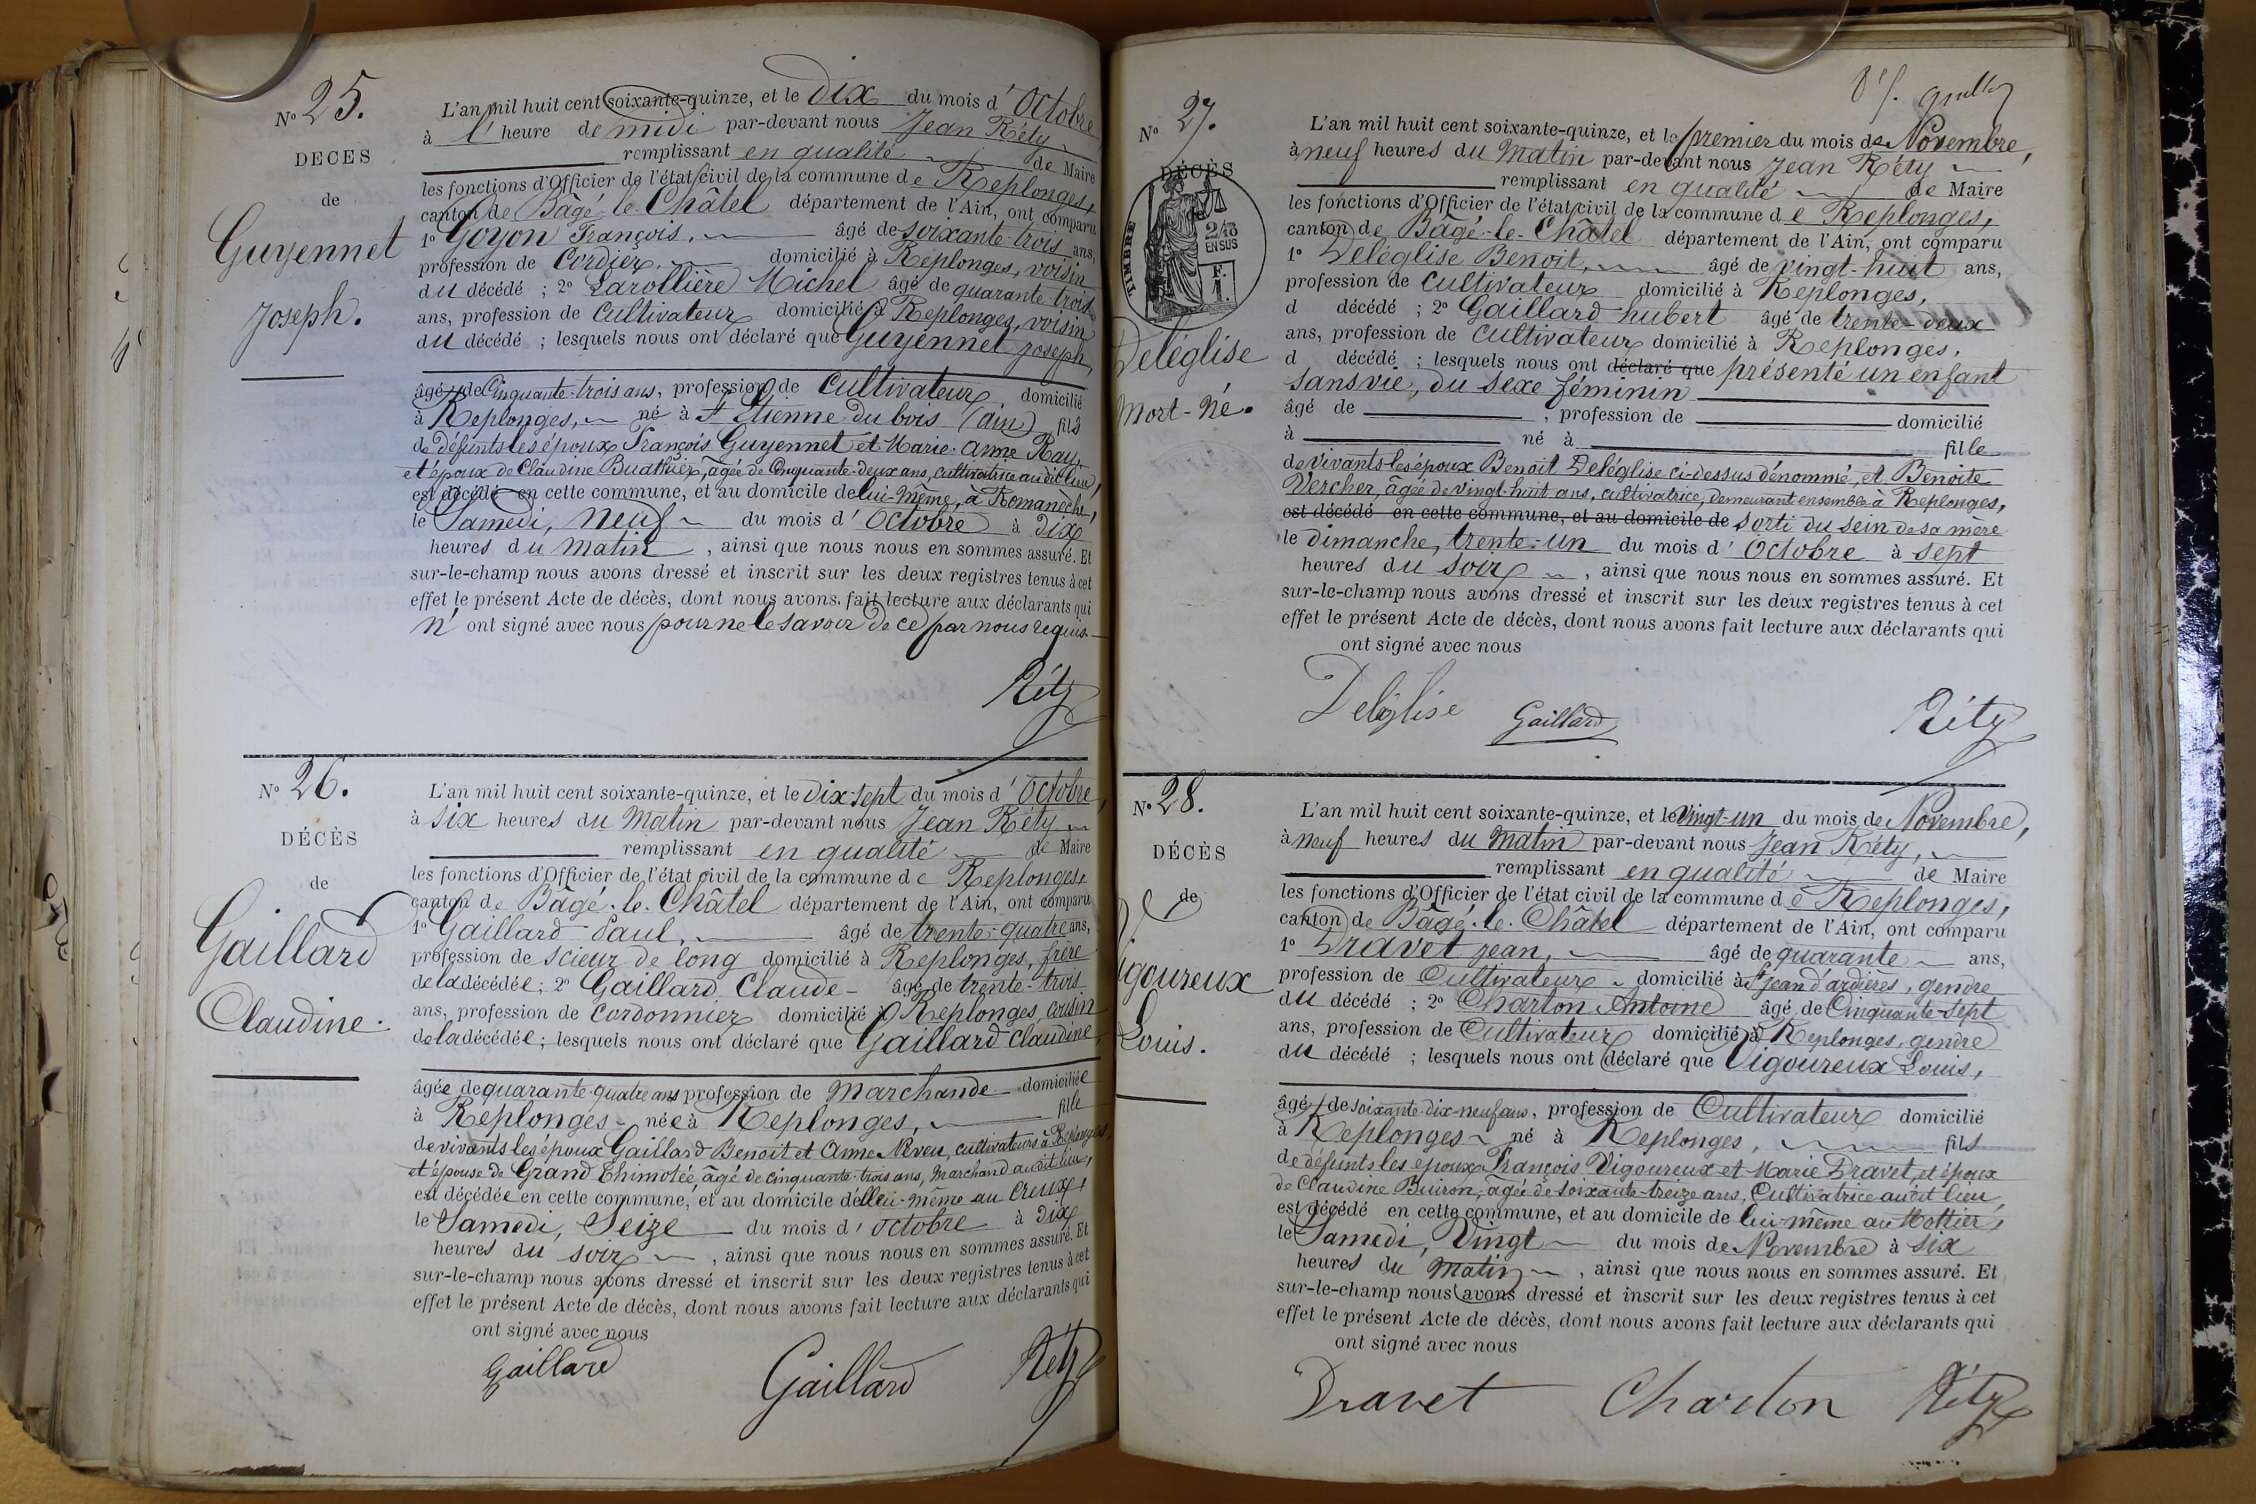 N° 25.
DECES
de
Guyennet
Joseph.
L'an mil huit cent soixante-quinze, et le Dix du mois d'Octobre
à l'heure de midi par-devant nous Jean Réty
remplissant en qualité de Maire
les fonctions d'Officier de l'état civil de la commune de Replonges,
canton de Bâgé-le-Châtel département de l'Ain, ont comparu
1° Goyon François, âgé de soixante-trois ans,
profession de Cordier domicilié à Replonges, voisin
du décédé ; 2° Larollière Michel âgé de quarante trois
ans, profession de Cultivateur domicilié à Replonges, voisin
du décédé ; lesquels nous ont déclaré que Guyennet Joseph,
âgé de Cinquante-trois ans, profession de Cultivateur domicilié
à Replonges, né à St Etienne du bois (ain) fils
de défunts les époux François Guyennet et Marie-Anne Ray,
et époux de Claudine Buathier, âgée de Cinquante-deux ans, cultivatrice au dit lieu,
est décédé en cette commune, et au domicile de lui-même, à Romanèche,
le Samedi, neuf du mois d'Octobre à dix
heures du Matin, ainsi que nous nous en sommes assuré. Et
sur-le-champ nous avons dressé et inscrit sur les deux registres tenus à cet
effet le présent Acte de décès, dont nous avons fait lecture aux déclarants qui
n'ont signé avec nous pour ne le savoir de ce par nous requis
Réty
N° 26.
DÉCÈS
de
Gaillard
Claudine.
L'an mil huit cent soixante-quinze, et le Dix-sept du mois d'Octobre,
à six heures du Matin par-devant nous Jean Réty
remplissant en qualité de Maire
les fonctions d'Officier de l'état civil de la commune de Replonges,
canton de Bâgé-le-Châtel département de l'Ain, ont comparu
1° Gaillard Paul, âgé de trente-quatre ans,
profession de scieur de long domicilié à Replonges, frère
de la décédée ; 2° Gaillard Claude âgé de trente-trois
ans, profession de Cordonnier domicilié à Replonges, cousin
de la décédée ; lesquels nous ont déclaré que Gaillard Claudine,
âgée de quarante-quatre ans profession de Marchande domiciliée
à Replonges née à Replonges, fille
de vivants les époux Gaillard Benoit et Anne Neveu, cultivateurs à Replonges,
et épouse de Grand Thimotée, âgé de cinquante-trois ans, Marchand au dit lieu,
est décédée en cette commune, et au domicile d'elle-même au Creux,
le Samedi, Seize du mois d'octobre à dix
heures du soir, ainsi que nous nous en sommes assuré. Et
sur-le-champ nous avons dressé et inscrit sur les deux registres tenus à cet
effet le présent Acte de décès, dont nous avons fait lecture aux déclarants qui
ont signé avec nous
Gaillard Gaillard Réty
N° 27.
DÉCÈS
TIMBRE
2/10
EN SUS
F.
1.
Deléglise
Mort-Né.
L'an mil huit cent soixante-quinze, et le premier du mois de Novembre,
à neuf heures du Matin par-devant nous Jean Réty
remplissant en qualité de Maire
les fonctions d'Officier de l'état civil de la commune de Replonges,
canton de Bâgé-le-Châtel département de l'Ain, ont comparu
1° Deléglise Benoit, âgé de vingt-huit ans,
profession de Cultivateur domicilié à Replonges,
d décédé ; 2° Gaillard hubert âgé de trente-deux
ans, profession de cultivateur domicilié à Replonges,
d décédé ; lesquels nous ont déclaré que présenté un enfant
sans vie, du sexe féminin
âgé de , profession de domicilié
à né à fille
de vivants les époux Benoit Deléglise ci-dessus dénommé, et Benoite
Vercher, âgée de vingt-huit ans, cultivatrice, demeurant ensemble à Replonges,
est décédé en cette commune, et au domicile de sorti du sein de sa mère
le dimanche, trente-un du mois d'Octobre à sept
heures du soir, ainsi que nous nous en sommes assuré. Et
sur-le-champ nous avons dressé et inscrit sur les deux registres tenus à cet
effet le présent Acte de décès, dont nous avons fait lecture aux déclarants qui
ont signé avec nous
Deléglise Gaillard Réty
N° 28.
DÉCÈS
de
Vigoureux
Louis.
L'an mil huit cent soixante-quinze, et le Vingt-un du mois de Novembre,
à Neuf heures du Matin par-devant nous Jean Réty,
remplissant en qualité de Maire
les fonctions d'Officier de l'état civil de la commune de Replonges,
canton de Bâgé-le-Châtel département de l'Ain, ont comparu
1° Dravet Jean, âgé de quarante ans,
profession de Cultivateur domicilié à St Jean d'ardières, gendre
du décédé ; 2° Charton Antoine âgé de Cinquante-sept
ans, profession de Cultivateur domicilié à Replonges, gendre
du décédé ; lesquels nous ont déclaré que Vigoureux Louis,
âgé de soixante-dix-neuf ans, profession de Cultivateur domicilié
à Replonges né à Replonges, fils
de défunts les époux François Vigoureux et Marie Dravet, et époux
de Claudine Buiron, âgée de soixante-treize ans, Cultivatrice au dit lieu,
est décédé en cette commune, et au domicile de lui-même au Mottier,
le Samedi, Vingt du mois de Novembre à six
heures du Matin, ainsi que nous nous en sommes assuré. Et
sur-le-champ nous avons dressé et inscrit sur les deux registres tenus à cet
effet le présent Acte de décès, dont nous avons fait lecture aux déclarants qui
ont signé avec nous
Dravet Charton Réty